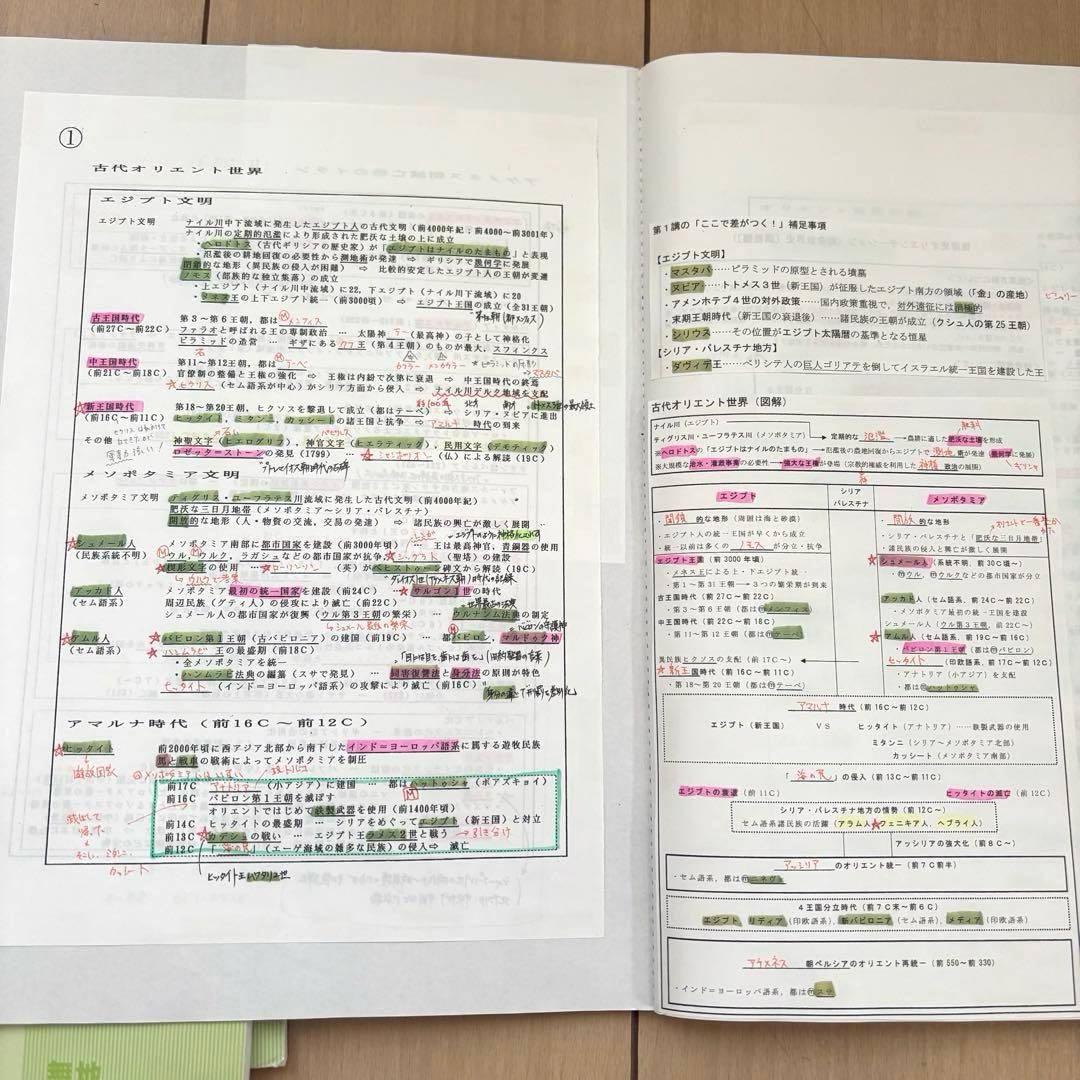 ①
古代オリエント世界
エジプト文明
エジプト文明 ナイル川中下流域に発生したエジプト人の古代文明（前4000年紀；前4000〜前3001年）
ナイル川の定期的氾濫により形成された肥沃な土壌の上に成立
・ヘロドトス（古代ギリシアの歴史家）が「エジプトはナイルのたまもの」と表現
・氾濫後の耕地回復の必要性から測地術が発達 ⇒ ギリシアで幾何学に発展
閉鎖的な地形（異民族の侵入が困難） ⇒ 比較的安定したエジプト人の王朝が変遷
ノモス（部族的な独立集落）の成立
・上エジプト（ナイル川中流域）に22，下エジプト（ナイル川下流域）に20
・メネス王の上下エジプト統一（前3000頃） ⇒ エジプト王国の成立（全31王朝）
古王国時代 第3〜第6王朝，都はメンフィス
（前27C〜前22C） ファラオと呼ばれる王の専制政治 … 太陽神ラー（最高神）の子として神格化
ピラミッドの造営 … ギザにあるクフ王（第4王朝）のものが最大，スフィンクス
中王国時代 第11〜第12王朝，都はテーベ
（前21C〜前18C） 官僚制の整備と王権の強化 ⇒ 王権は内紛で次第に衰退 ⇒ 中王国時代の終焉
ヒクソス（セム語系が中心）がシリア方面から侵入 ⇒ ナイル川デルタ地域を支配
新王国時代 第18〜第20王朝，ヒクソスを撃退して成立（都はテーベ） ⇒ シリア・ヌビアに進出
（前16C〜前11C） ヒッタイト，ミタンニ，カッシートの諸王国と抗争 → アマルナ 時代の到来
その他 神聖文字（ヒエログリフ），神官文字（ヒエラティック），民用文字（デモティック）
ロゼッタ＝ストーンの発見（1799） … シャンポリオン（仏）による解読（19C）
メソポタミア文明
メソポタミア文明 ティグリス・ユーフラテス川流域に発生した古代文明（前4000年紀）
肥沃な三日月地帯（メソポタミア〜シリア・パレスチナ）
開放的な地形（人・物資の交流，交易の発達） ⇒ 諸民族の興亡が激しく展開
シュメール人 メソポタミア南部に都市国家を建設（前3000年頃） … 王は最高神官，青銅器の使用
（民族系統不明） ウル，ウルク，ラガシュなどの都市国家が抗争，ジッグラト（聖塔）の建設
楔形文字の使用 … ローリンソン（英）がベヒストゥーン碑文から解読（19C）
アッカド人 メソポタミア最初の統一国家を建設（前24C） … サルゴン1世
（セム語系） 周辺民族（グティ人）の侵攻により滅亡（前22C）
シュメール人の都市国家が復興（ウル第3王朝の繁栄） … ウルナンム法典の制定
アムル人 バビロン第1王朝（古バビロニア）の建国（前19C） … 都バビロン，マルドゥク神
（セム語系） ハンムラビ 王の最盛期（前18C）
・全メソポタミアを統一
・ハンムラビ法典の編纂（スサで発見） … 同害復讐法と身分法の原則が特色
ヒッタイト（インド＝ヨーロッパ語系）の攻撃により滅亡（前16C）
アマルナ時代（前16C〜前12C）
ヒッタイト 前2000年頃に西アジア北部から南下したインド＝ヨーロッパ語系に属する遊牧民族
馬と戦車の戦術によってメソポタミアを制圧
前17C アナトリア（小アジア）に建国 … 都はハットゥシャ（ボアズキョイ）
前16C バビロン第1王朝を滅ぼす
オリエントではじめて鉄製武器を使用（前1400年頃）
前14C ヒッタイトの最盛期 … シリアをめぐってエジプト（新王国）と対立
前13C カデシュの戦い … エジプト王ラメス2世と戦う →引き分け
前12C 「海の民」（エーゲ海域の雑多な民族）の侵入⇒ 滅亡
第1講の「ここで差がつく！」補足事項
【エジプト文明】
・マスタバ……ピラミッドの原型とされる墳墓
・ヌビア……トトメス3世（新王国）が征服したエジプト南方の領域（「金」の産地）
・アメンホテプ4世の対外政策……国内政策重視で，対外遠征には消極的
・末期王朝時代（新王国の衰退後）……諸民族の王朝が成立（クシュ人の第25王朝）
・シリウス……その位置がエジプト太陽暦の基準となる恒星
【シリア・パレスチナ地方】
・ダヴィデ王……ペリシテ人の巨人ゴリアテを倒してイスラエル統一王国を建設した王
古代オリエント世界（図解）
ナイル川（エジプト）
ティグリス川・ユーフラテス川（メソポタミア） 定期的な 氾濫 →農耕に適した肥沃な土壌を形成
※ヘロドトスの「エジプトはナイルのたまもの」→氾濫後の農地回復からエジプトで測地術が発達（幾何学に発展）
※大規模な治水・灌漑事業の必要性→強大な王権が登場（宗教的権威を利用した神権政治の展開）
エジプト
シリア
パレスチナ
メソポタミア
閉鎖的な地形（周囲は海と砂漠）
・エジプト人の統一王国が早くから成立
・統一以前は多くのノモスが分立・抗争
エジプト王国（前3000年頃）
・メネス王による上・下エジプト統一
・第1〜第31王朝→3つの繁栄期が到来
古王国時代（前27C〜前22C）
・第3〜第6王朝（都はⓂメンフィス
中王国時代（前22C〜前18C）
・第11〜第12王朝（都はⓂテーベ）
異民族ヒクソスの支配（前17C〜）
新王国時代（前16C〜前11C）
・第18〜第20王朝（都はⓂテーベ）
開放的な地形
・シリア・パレスチナと「肥沃な三日月地帯」
・諸民族の侵入と興亡が激しく展開
シュメール人（系統不明，前30C頃〜）
・Ⓜウル，Ⓜウルクなどの都市国家が分立
アッカド人（セム語系，前24C〜前22C）
・メソポタミア最初の統一国家を建設
シュメール人（ウル第3王朝，前22C〜）
アムル人（セム語系，前19C〜前16C）
・バビロン第1王朝（都はⓂバビロン）
ヒッタイト（印欧語系，前17C〜前12C）
・アナトリア（小アジア）を支配
・都はⓂハットゥシャ
アマルナ 時代（前16C〜前12C）
エジプト（新王国） VS ヒッタイト（アナトリア）……鉄製武器の使用
ミタンニ（シリア〜メソポタミア北部）
カッシート（メソポタミア南部）
「海の民」の侵入（前13C〜前11C）
エジプトの衰退（前11C）
ヒッタイトの滅亡（前12C）
シリア・パレスチナ地方の情勢（前12C〜）
セム語系諸民族の活躍（アラム人，フェニキア人，ヘブライ人）
アッシリアの強大化（前8C〜）
アッシリア のオリエント統一（前7C前半）
・セム語系，都はⓂニネヴェ
4王国分立時代（前7C末〜前6C）
エジプト，リディア（印欧語系），新バビロニア（セム語系），メディア（印欧語系）
アケメネス 朝ペルシアのオリエント再統一（前550〜前330）
・インド＝ヨーロッパ語系，都はⓂスサ